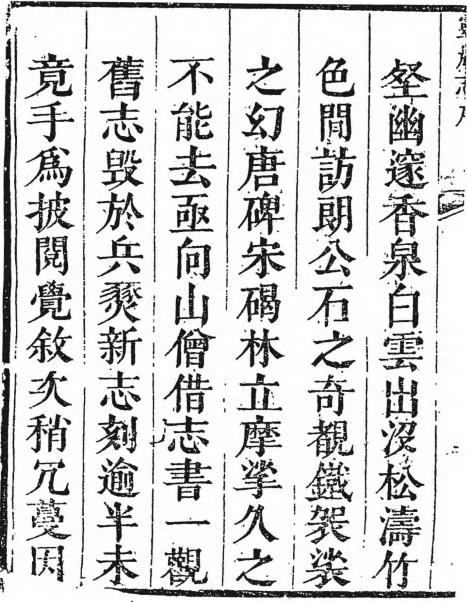 壑幽邃香泉白雲出沒松濤竹
色間訪朗公石之奇覩鐵袈裟
之幻唐碑宋碣林立摩挲久之
不能去亟向山僧借志書一觀
舊志毁於兵燹新志刻逾半未
竟手爲披閱覺敘次稍冗蔓因